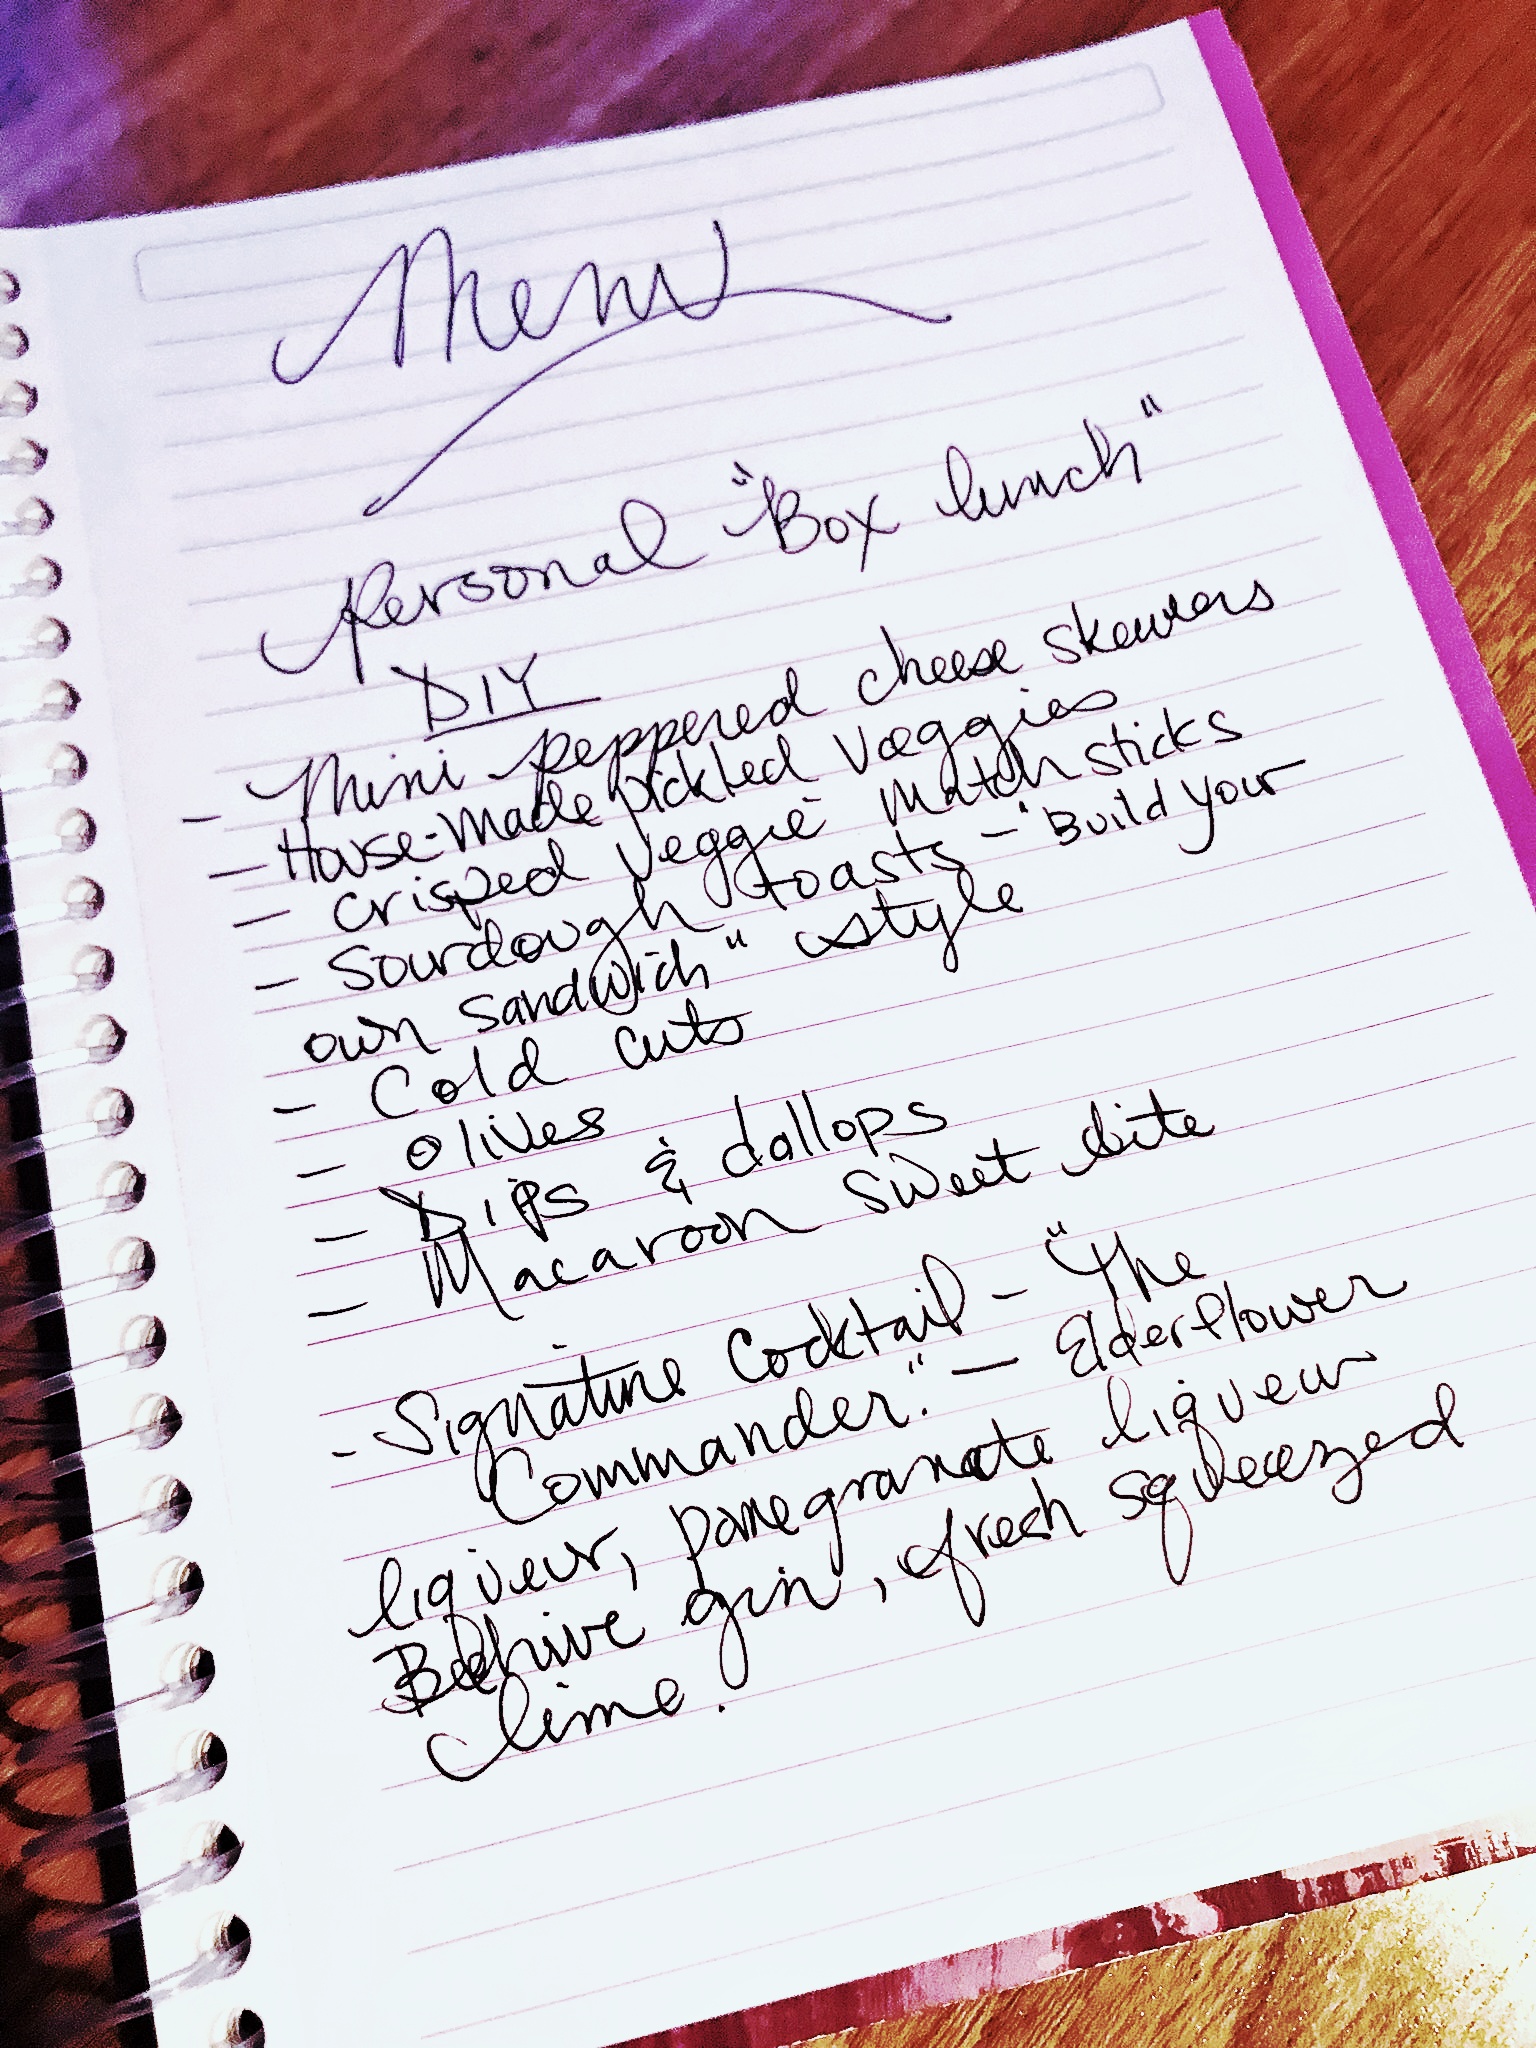 Menu
Personal "Box lunch"
DIY
- Mini peppered cheese skewers
- House-Made pickled Veggies
- Crisped Veggie Match sticks
- Sourdough toasts - "Build your
own sandwich" style
- Cold cuts
- Olives
- Dips & dallops
- Macaroon sweet bite
- Signature Cocktail - "The
Commander." - Elderflower
liqueur, pomegranate liqueur
Beehive gin, fresh squeezed
lime.